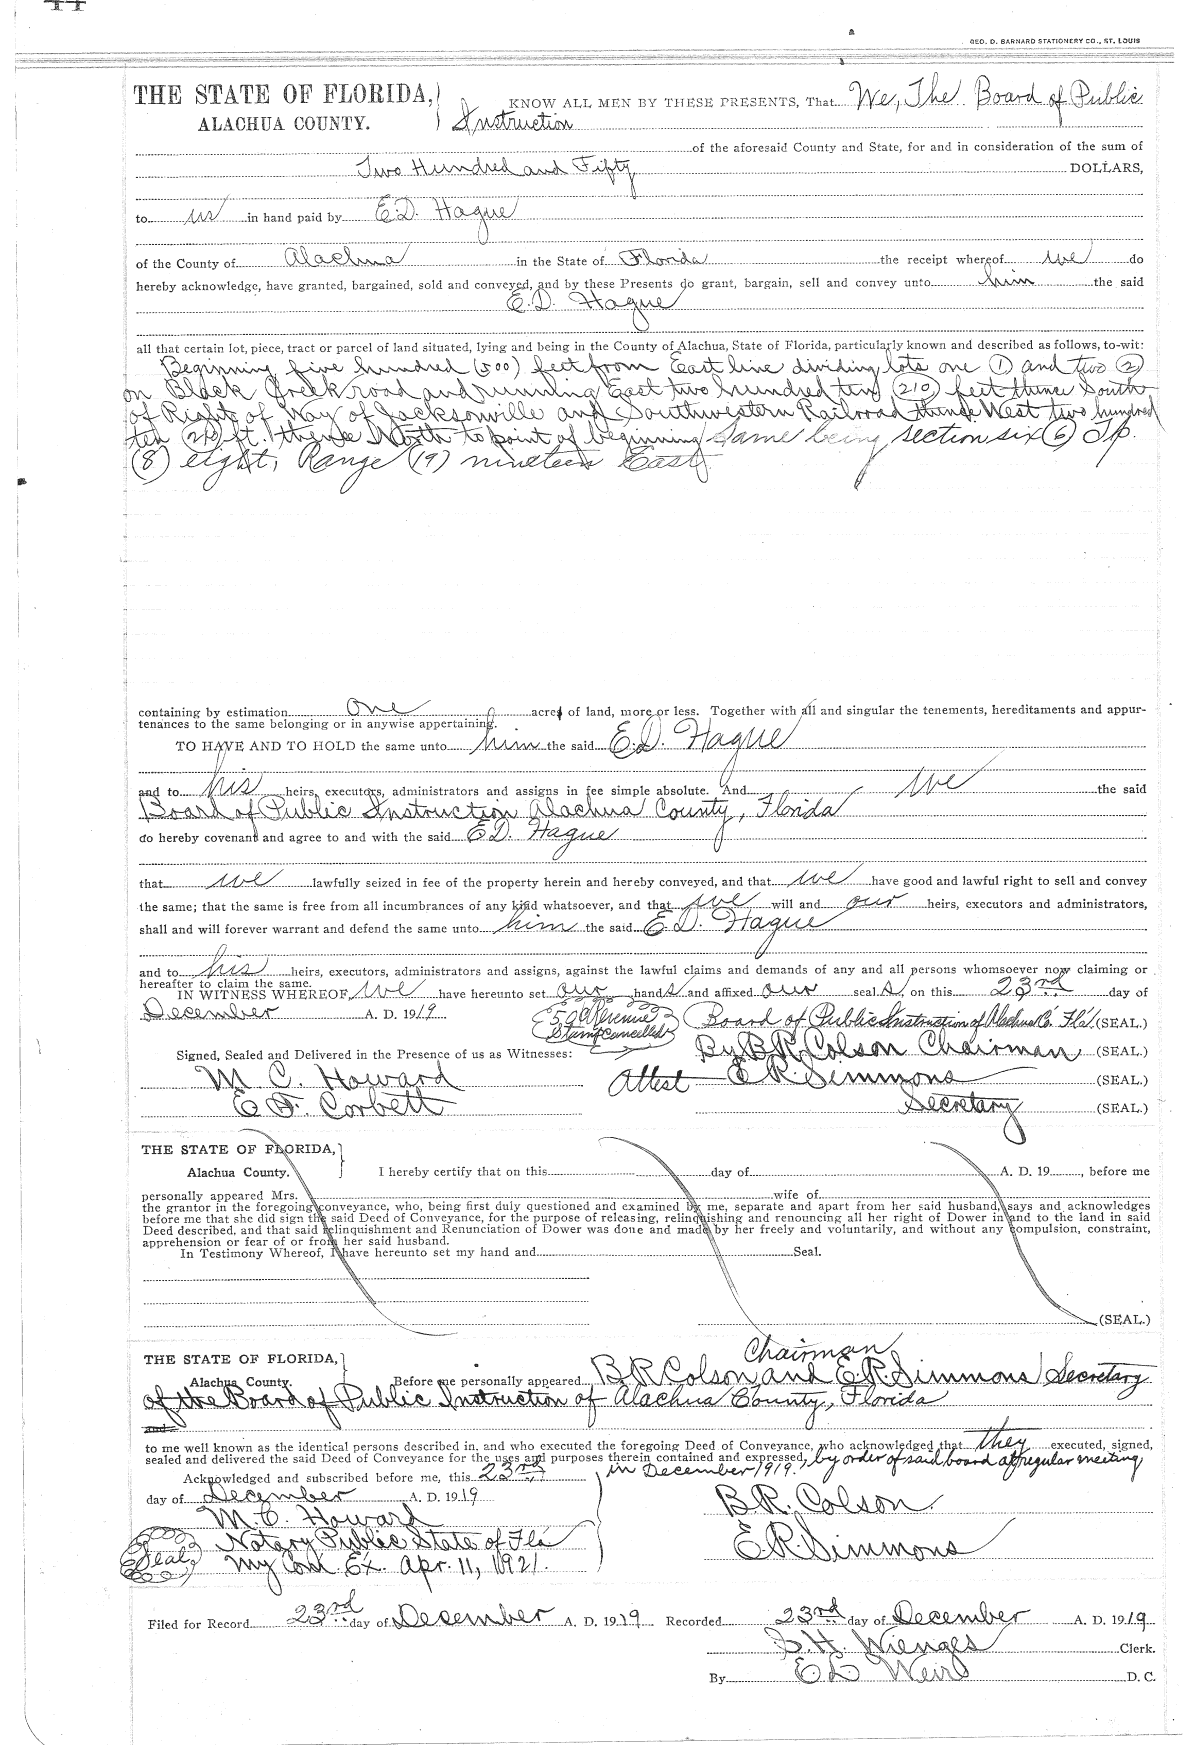 44
GEO. D. BARNARD STATIONERY CO., ST. LOUIS
THE STATE OF FLORIDA,
ALACHUA COUNTY.
KNOW ALL MEN BY THESE PRESENTS, That We, The Board of Public
Instruction
of the aforesaid County and State, for and in consideration of the sum of
Two Hundred and Fifty DOLLARS,
to us in hand paid by E.D. Hague
of the County of Alachua in the State of Florida the receipt whereof we do
hereby acknowledge, have granted, bargained, sold and conveyed, and by these Presents do grant, bargain, sell and convey unto him the said
E.D. Hague
all that certain lot, piece, tract or parcel of land situated, lying and being in the County of Alachua, State of Florida, particularly known and described as follows, to-wit:
Beginning five hundred (500) feet from East line dividing lots one (1) and two (2)
on Black Creek road and running East two hundred ten (210) feet thence South
of Rights of Way of Jacksonville and Southwestern Railroad thence West two hundred
ten (210) ft. thence North to point of beginning same being section six (6) Tp.
(8) eight, Range (19) nineteen East.
containing by estimation one acre of land, more or less. Together with all and singular the tenements, hereditaments and appur-
tenances to the same belonging or in anywise appertaining.
TO HAVE AND TO HOLD the same unto him the said E.D. Hague
and to his heirs, executors, administrators and assigns in fee simple absolute. And we the said
Board of Public Instruction Alachua County, Florida
do hereby covenant and agree to and with the said E.D. Hague
that we lawfully seized in fee of the property herein and hereby conveyed, and that we have good and lawful right to sell and convey
the same; that the same is free from all incumbrances of any kind whatsoever, and that we will and our heirs, executors and administrators,
shall and will forever warrant and defend the same unto him the said E.D. Hague
and to his heirs, executors, administrators and assigns, against the lawful claims and demands of any and all persons whomsoever now claiming or
hereafter to claim the same.
IN WITNESS WHEREOF, we have hereunto set our hands and affixed our seals, on this 23rd day of
December A. D. 1919. 50¢ Revenue Stamp Cancelled Board of Public Instruction of Alachua Co. Fla. (SEAL.)
Signed, Sealed and Delivered in the Presence of us as Witnesses: By B.R. Colson Chairman (SEAL.)
M. C. Howard Attest E.R. Simmons (SEAL.)
E F. Corbett Secretary (SEAL.)
THE STATE OF FLORIDA,
Alachua County. I hereby certify that on this day of A. D. 19 , before me
personally appeared Mrs. wife of
the grantor in the foregoing conveyance, who, being first duly questioned and examined by me, separate and apart from her said husband, says and acknowledges
before me that she did sign the said Deed of Conveyance, for the purpose of releasing, relinquishing and renouncing all her right of Dower in and to the land in said
Deed described, and that said relinquishment and Renunciation of Dower was done and made by her freely and voluntarily, and without any compulsion, constraint,
apprehension or fear of or from her said husband.
In Testimony Whereof, I have hereunto set my hand and Seal.
(SEAL.)
Chairman
THE STATE OF FLORIDA,
Alachua County. Before me personally appeared B.R. Colson and E.R. Simmons Secretary
of the Board of Public Instruction of Alachua County, Florida
and
to me well known as the identical persons described in, and who executed the foregoing Deed of Conveyance, who acknowledged that they executed, signed,
sealed and delivered the said Deed of Conveyance for the uses and purposes therein contained and expressed, by order of said board at regular meeting
in December 1919.
Acknowledged and subscribed before me, this 23rd
day of December A. D. 1919 B.R. Colson.
M. C. Howard
Notary Public State of Fla E.R. Simmons
Seal My Com. Ex. Apr. 11, 1921.
Filed for Record 23rd day of December A. D. 1919 Recorded 23rd day of December A. D. 1919
S.H. Wienges Clerk.
By E L Weir D. C.